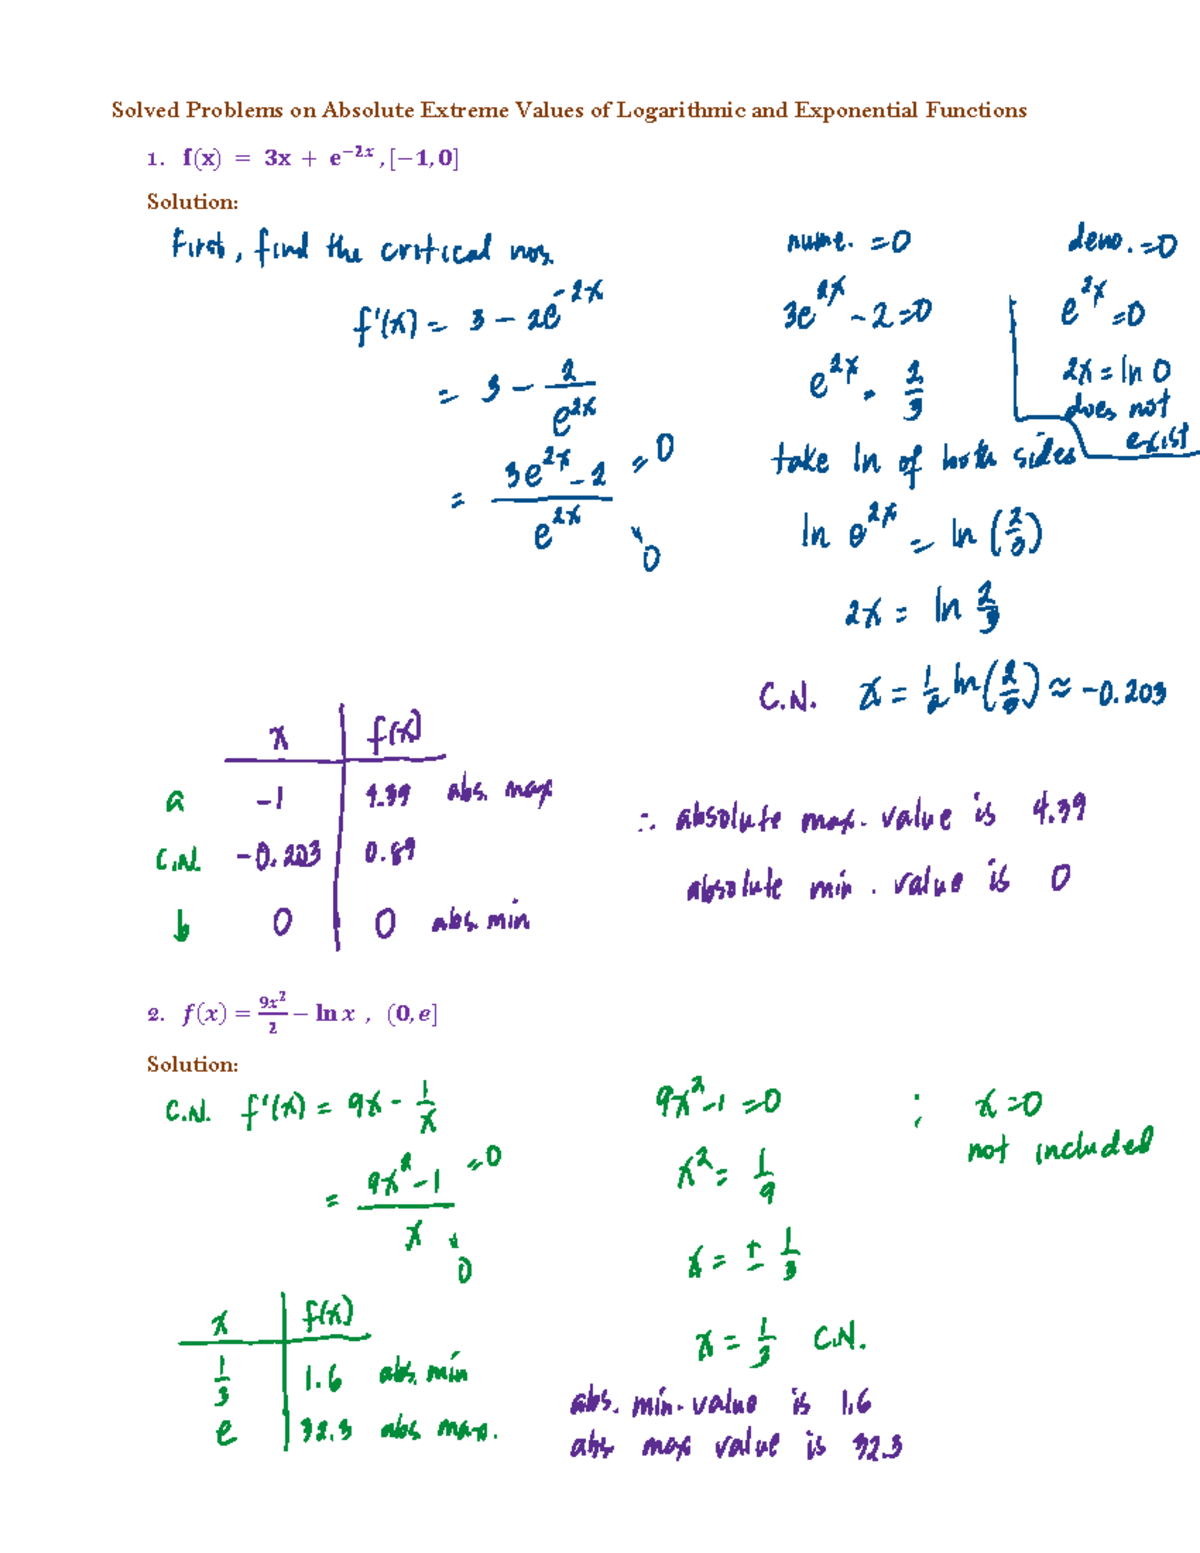 Solved Problems on Absolute Extreme Values of Logarithmic and Exponential Functions
1. f(x) = 3x + e^{-2x}, [-1, 0]
Solution:
First, find the critical nos.
f'(x) = 3 - 2e^{-2x}
= 3 - \frac{2}{e^{2x}}
= \frac{3e^{2x} - 2}{e^{2x}} = 0
= 0
nume. = 0
3e^{2x} - 2 = 0
e^{2x} = \frac{2}{3}
take ln of both sides
ln e^{2x} = ln (\frac{2}{3})
2x = ln \frac{2}{3}
C.N. x = \frac{1}{2} ln(\frac{2}{3}) ≈ -0.203
deno. = 0
e^{2x} = 0
2x = ln 0
does not
exist
x | f(x)
a -1 | 4.39 abs. max
C.N. -0.203 | 0.89
b 0 | 0 abs. min
∴ absolute max. value is 4.39
absolute min. value is 0
2. f(x) = \frac{9x^2}{2} - ln x , (0, e]
Solution:
C.N. f'(x) = 9x - \frac{1}{x}
= \frac{9x^2 - 1}{x} = 0
= 0
9x^2 - 1 = 0 ; x = 0
not included
x^2 = \frac{1}{9}
x = ± \frac{1}{3}
x = \frac{1}{3} C.N.
x | f(x)
\frac{1}{3} | 1.6 abs. min
e | 32.3 abs max.
abs. min. value is 1.6
abs max value is 32.3